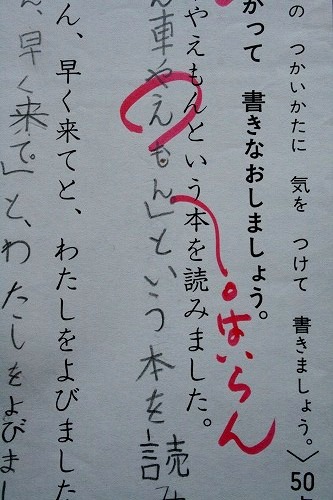 の つかいかたに 気を つけて 書きましょう。〉50
かって 書きなおしましょう。
。はいらん
やえもんという本を読みました。
ん車やえもん。」という本を読み
ん、早く来てと、わたしをよびました
ん、早く来て。」と、わたしをよびまし